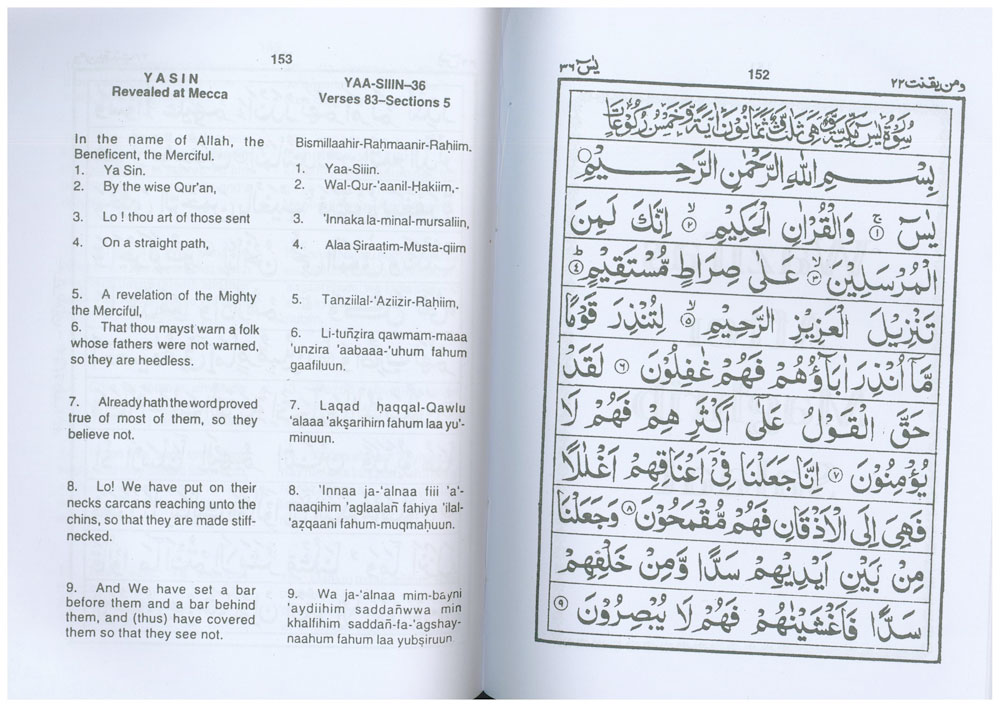 ومن يقنت ٢٢
152
يٰسٓ ٣٦
سُوْرَةُ يٰسٓ مَكِّيَّةٌ وَّهِىَ ثَلٰثٌ وَّثَمَانُوْنَ اٰيَةً وَّخَمْسُ رُكُوْعَاتٍ
بِسْمِ اللّٰهِ الرَّحْمٰنِ الرَّحِيْمِ
يٰسٓ ۚ ﴿١﴾ وَالْقُرْاٰنِ الْحَكِيْمِ ۙ ﴿٢﴾ اِنَّكَ لَمِنَ
الْمُرْسَلِيْنَ ۙ ﴿٣﴾ عَلٰى صِرَاطٍ مُّسْتَقِيْمٍ ؕ ﴿٤﴾
تَنْزِيْلَ الْعَزِيْزِ الرَّحِيْمِ ۙ ﴿٥﴾ لِتُنْذِرَ قَوْمًا
مَّاۤ اُنْذِرَ اٰبَآؤُهُمْ فَهُمْ غٰفِلُوْنَ ﴿٦﴾ لَقَدْ
حَقَّ الْقَوْلُ عَلٰٓى اَكْثَرِهِمْ فَهُمْ لَا
يُؤْمِنُوْنَ ﴿٧﴾ اِنَّا جَعَلْنَا فِىْۤ اَعْنَاقِهِمْ اَغْلٰلًا
فَهِىَ اِلَى الْاَذْقَانِ فَهُمْ مُّقْمَحُوْنَ ﴿٨﴾ وَجَعَلْنَا
مِنْۢ بَيْنِ اَيْدِيْهِمْ سَدًّا وَّمِنْ خَلْفِهِمْ
سَدًّا فَاَغْشَيْنٰهُمْ فَهُمْ لَا يُبْصِرُوْنَ ﴿٩﴾
153
YASIN
Revealed at Mecca
In the name of Allah, the
Beneficent, the Merciful.
1. Ya Sin.
2. By the wise Qur'an,
3. Lo ! thou art of those sent
4. On a straight path,
5. A revelation of the Mighty
the Merciful,
6. That thou mayst warn a folk
whose fathers were not warned,
so they are heedless.
7. Already hath the word proved
true of most of them, so they
believe not.
8. Lo! We have put on their
necks carcans reaching unto the
chins, so that they are made stiff-
necked.
9. And We have set a bar
before them and a bar behind
them, and (thus) have covered
them so that they see not.
YAA-SIIIN–36
Verses 83–Sections 5
Bismillaahir-Raḥmaanir-Raḥiim.
1. Yaa-Siiin.
2. Wal-Qur-'aanil-Ḥakiim,-
3. 'Innaka la-minal-mursaliin,
4. Alaa Ṣiraaṭim-Musta-qiim
5. Tanziilal-'Aziizir-Raḥiim,
6. Li-tuñẓira qawmam-maaa
'unzira 'aabaaa-'uhum fahum
gaafiluun.
7. Laqad ḥaqqal-Qawlu
'alaaa 'akṣarihim fahum laa yu'-
minuun.
8. 'Innaa ja-'alnaa fiii 'a'-
naaqihim 'aglaalañ fahiya 'ilal-
'aẓqaani fahum-muqmaḥuun.
9. Wa ja-'alnaa mim-bayni
'aydiihim saddañwwa min
khalfihim saddañ-fa-'agshay-
naahum fahum laa yubṣiruun.